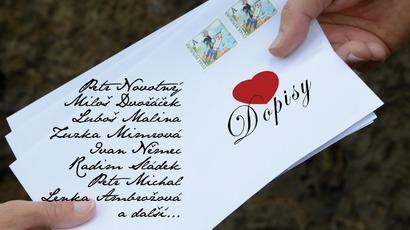 Petr Novotný
Miloš Dvořáček
Luboš Malina
Zuzka Mimrová
Ivan Němec
Radim Sládek
Petr Michal
Lenka Ambrožová
a další...
Dopisy